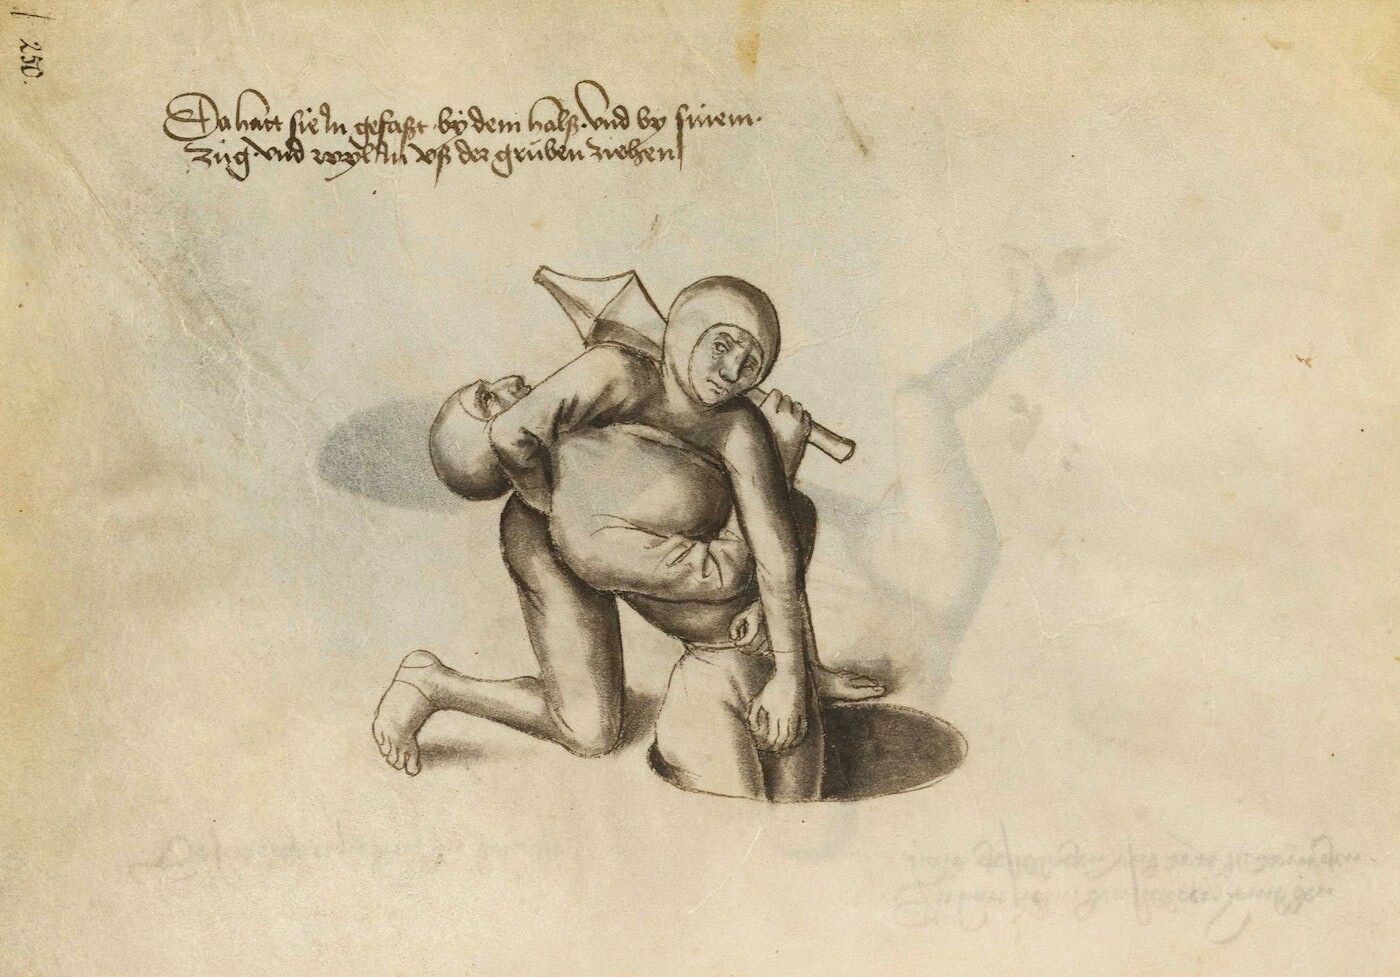 250.
Da hatt sie In gefasst by dem halss · vnd by sinem ·
züg · vnd wyl In vss der grüben ziehen